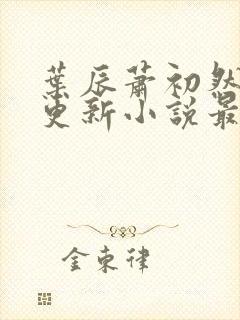 葉辰蕭初然
更新小說最
金東律